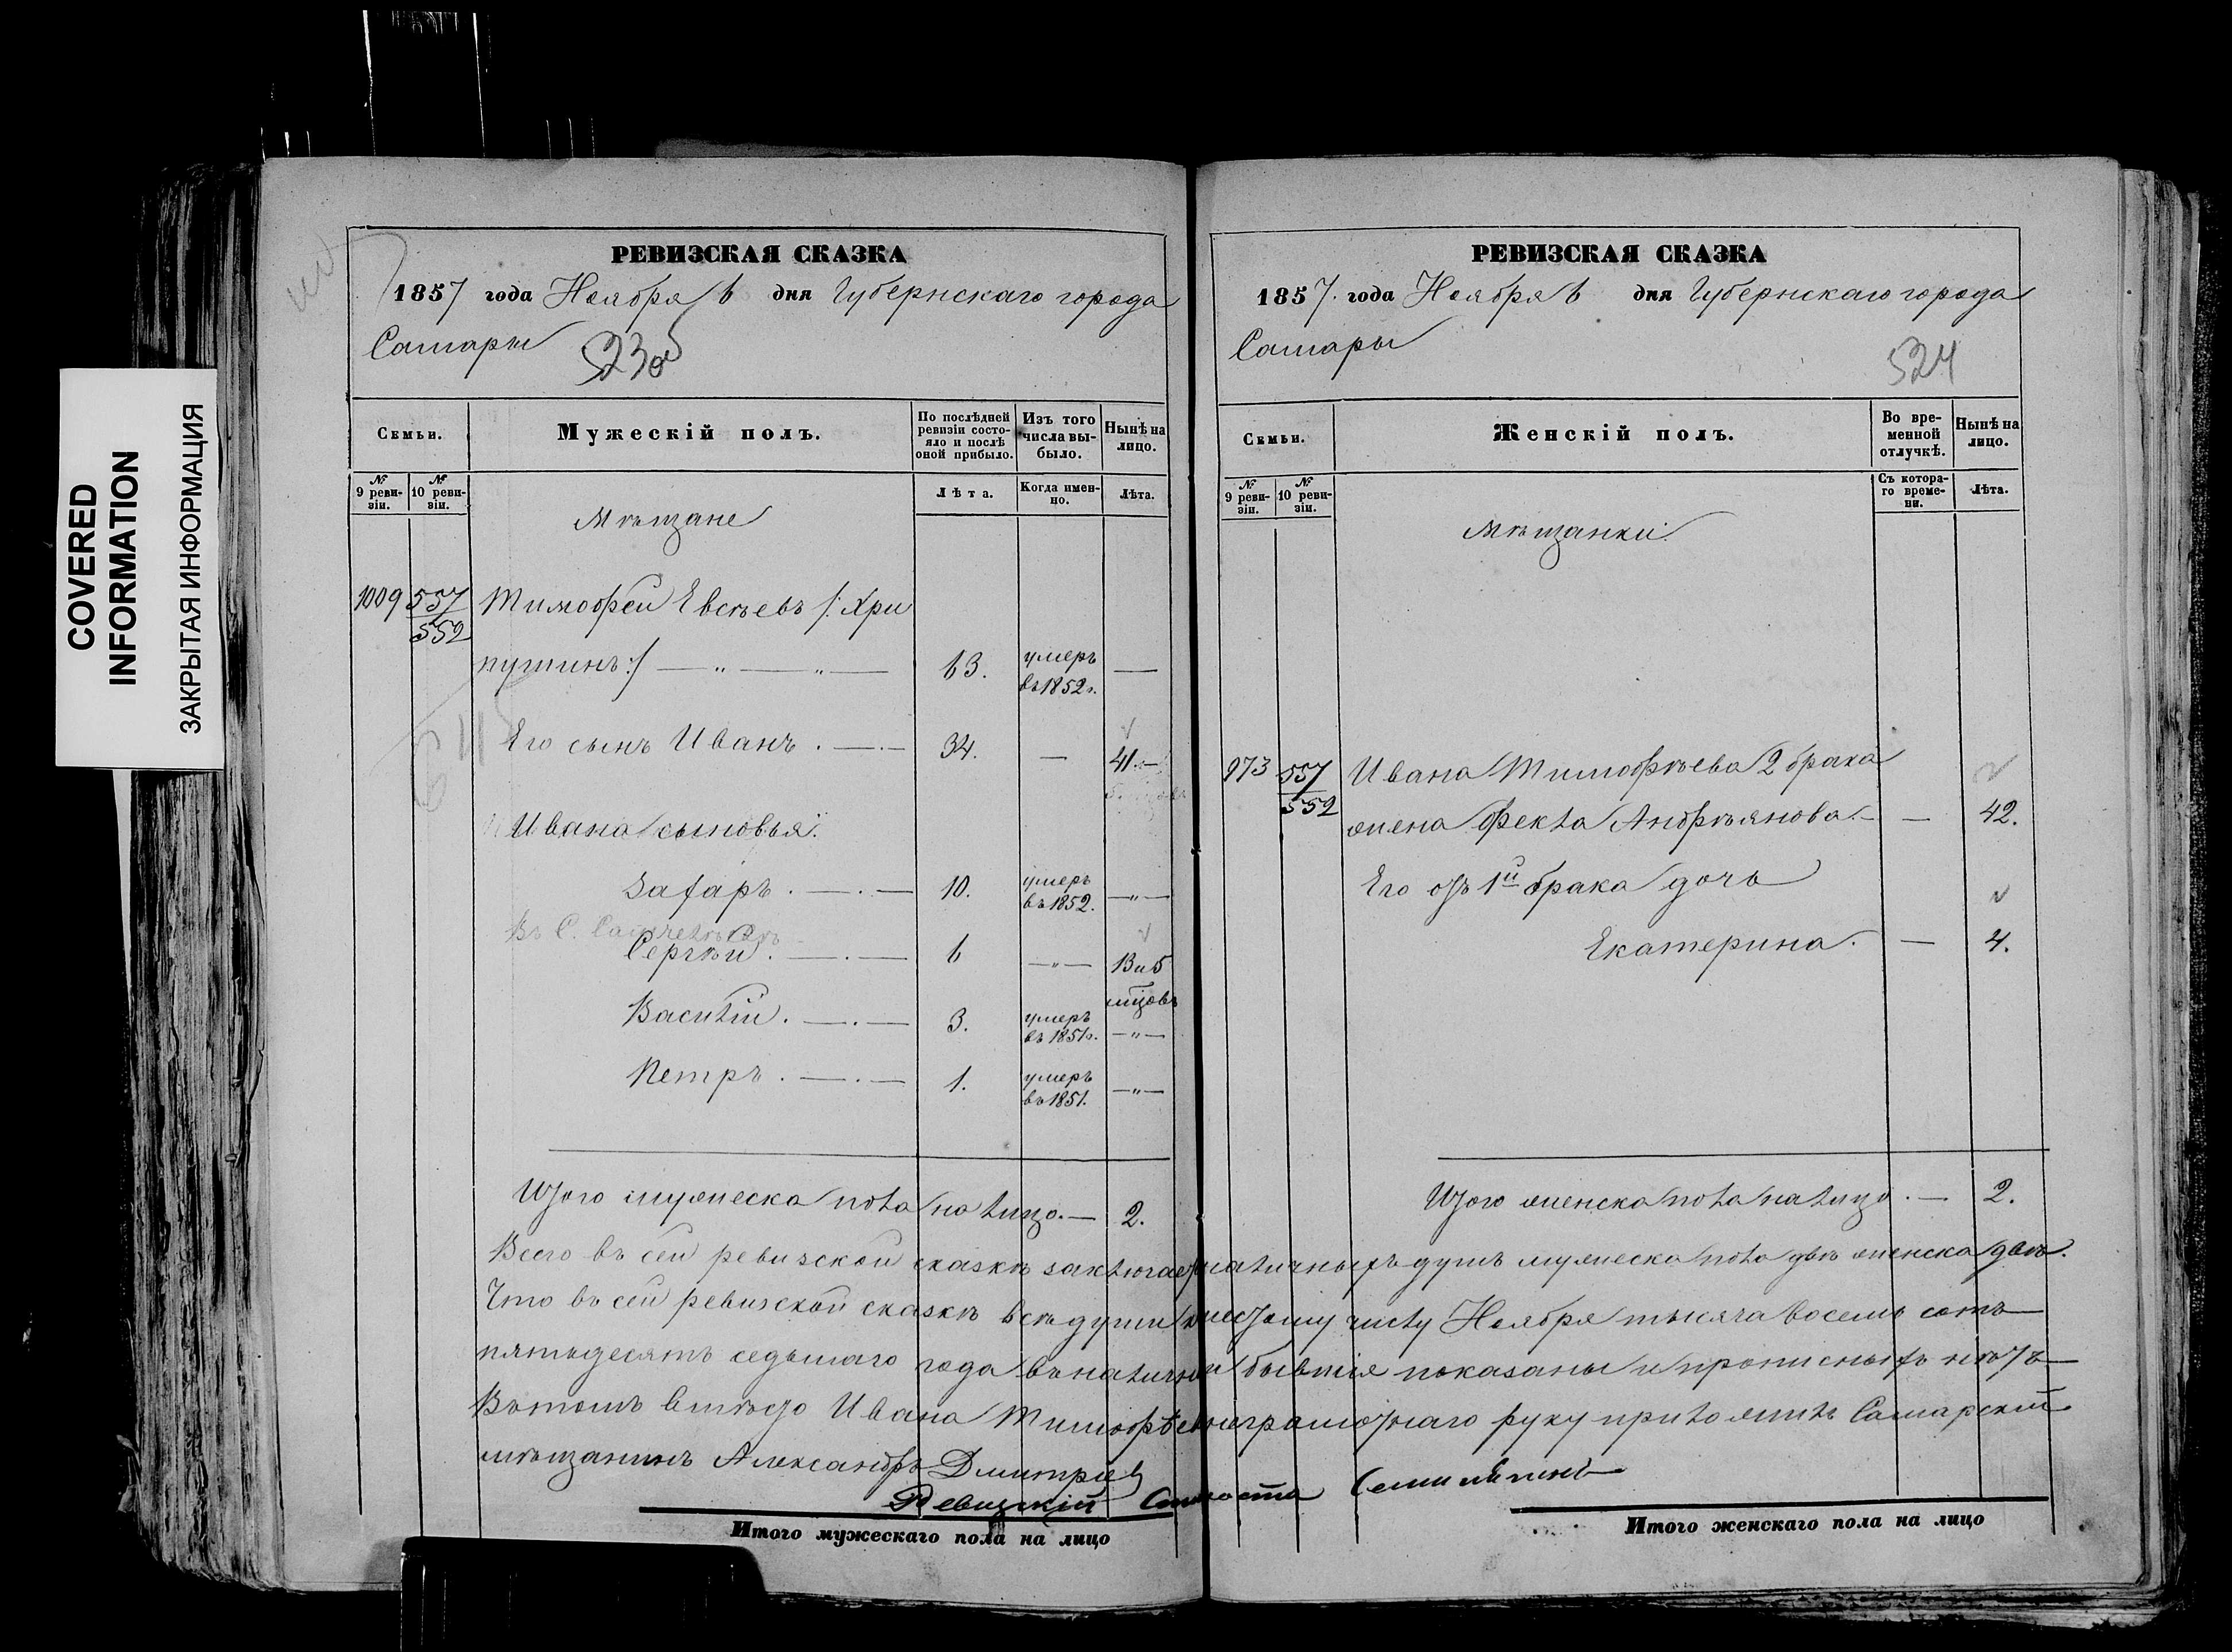 COVERED
INFORMATION
ЗАКРЫТАЯ ИНФОРМАЦИЯ
РЕВИЗСКАЯ СКАЗКА
1857 года Ноября 6 дня Губернскаго города
Самары
523об
Семьи.
Мужескій полъ.
По послѣдней ревизіи состояло и послѣ оной прибыло.
Изъ того числа выбыло.
Нынѣ на лицо.
№ 9 ревизіи.
№ 10 ревизіи.
Лѣта.
Когда именно.
Лѣта.
Мѣщане
1009 557/552 Тимофей Евсѣевъ /: Хри
пушинъ :/ 63. умеръ въ 1852 г. —
Его сынъ Иванъ. 34. — 41. —
Ивана сыновья:
Захаръ. 10. умеръ въ 1852. — " —
Въ С.
Сергѣй. 6 — " — 13 и 5 мцовъ
Василій. 3. умеръ въ 1851 г. — " —
Петръ. 1. умеръ въ 1851. — " —
Итого мужеска пола на лицо. — 2.
РЕВИЗСКАЯ СКАЗКА
1857. года Ноября 6 дня Губернскаго города
Самары
524
Семьи.
Женскій полъ.
Во временной отлучкѣ.
Нынѣ на лицо.
№ 9 ревизіи.
№ 10 ревизіи.
Съ котораго времени.
Лѣта.
Мѣщанки:
973 557/552 Ивана Тимофѣева 2 брака
жена Фекла Андрѣянова. — — 42.
Его отъ 1й брака дочь
Екатерина. — 4.
Итого женска пола на лицо. — 2.
Всего въ сей ревизской сказкѣ заключает наличныхъ душъ мужеска пола двѣ женска двѣ.
Что въ сей ревизской сказкѣ всѣ души к шестому числу Ноября тысяча восемь сотъ
пятьдесятъ седьмаго года въ наличіи бывшія показаны и прописныхъ нѣтъ
Въ томъ вмѣсто Ивана Тимофѣева неграмотнаго руку приложилъ Самарскій
мѣщанинъ Александръ Дмитріев
Ревизскій Староста
Итого мужескаго пола на лицо
Итого женскаго пола на лицо